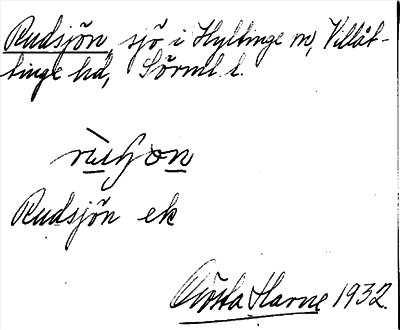 Rudsjön, sjö i Hyltinge sn, Villåt-
tinge hd, Sörml. l.
Rudsjön ek
Gösta Harne 1932.